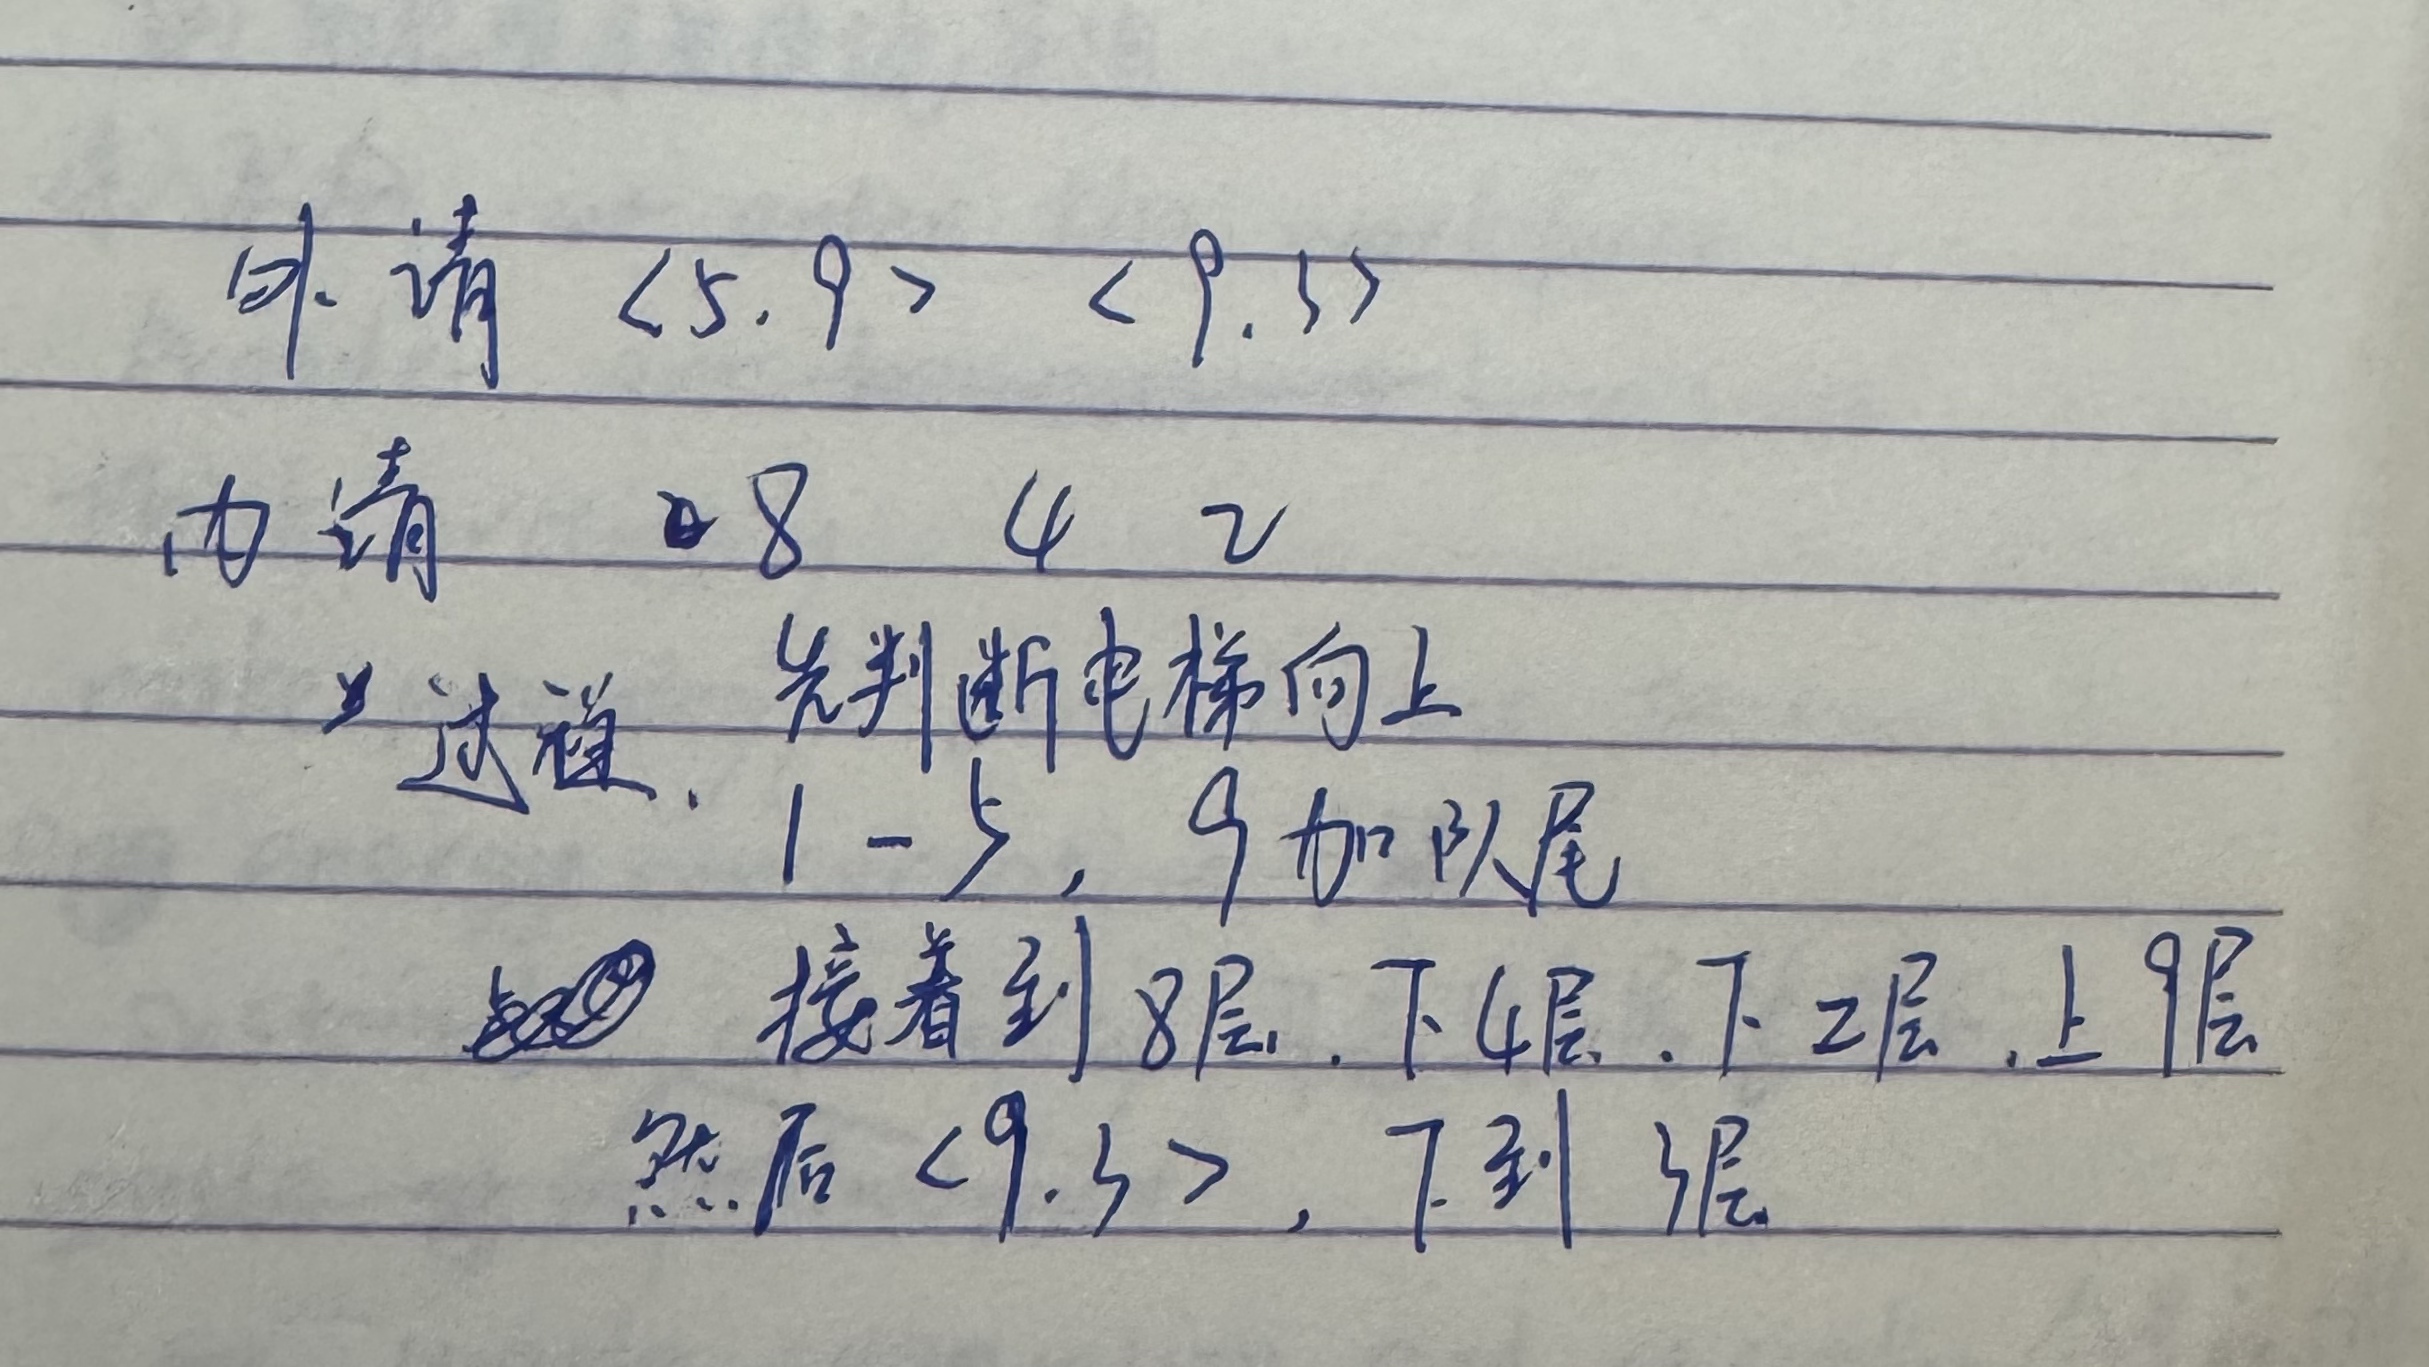 外请 <5.9> <9.3>
内请 8 4 2
过程. 先判断电梯向上
1-5, 9加队尾
接着到8层. 下4层. 下2层. 上9层
然后<9.3>, 下到3层